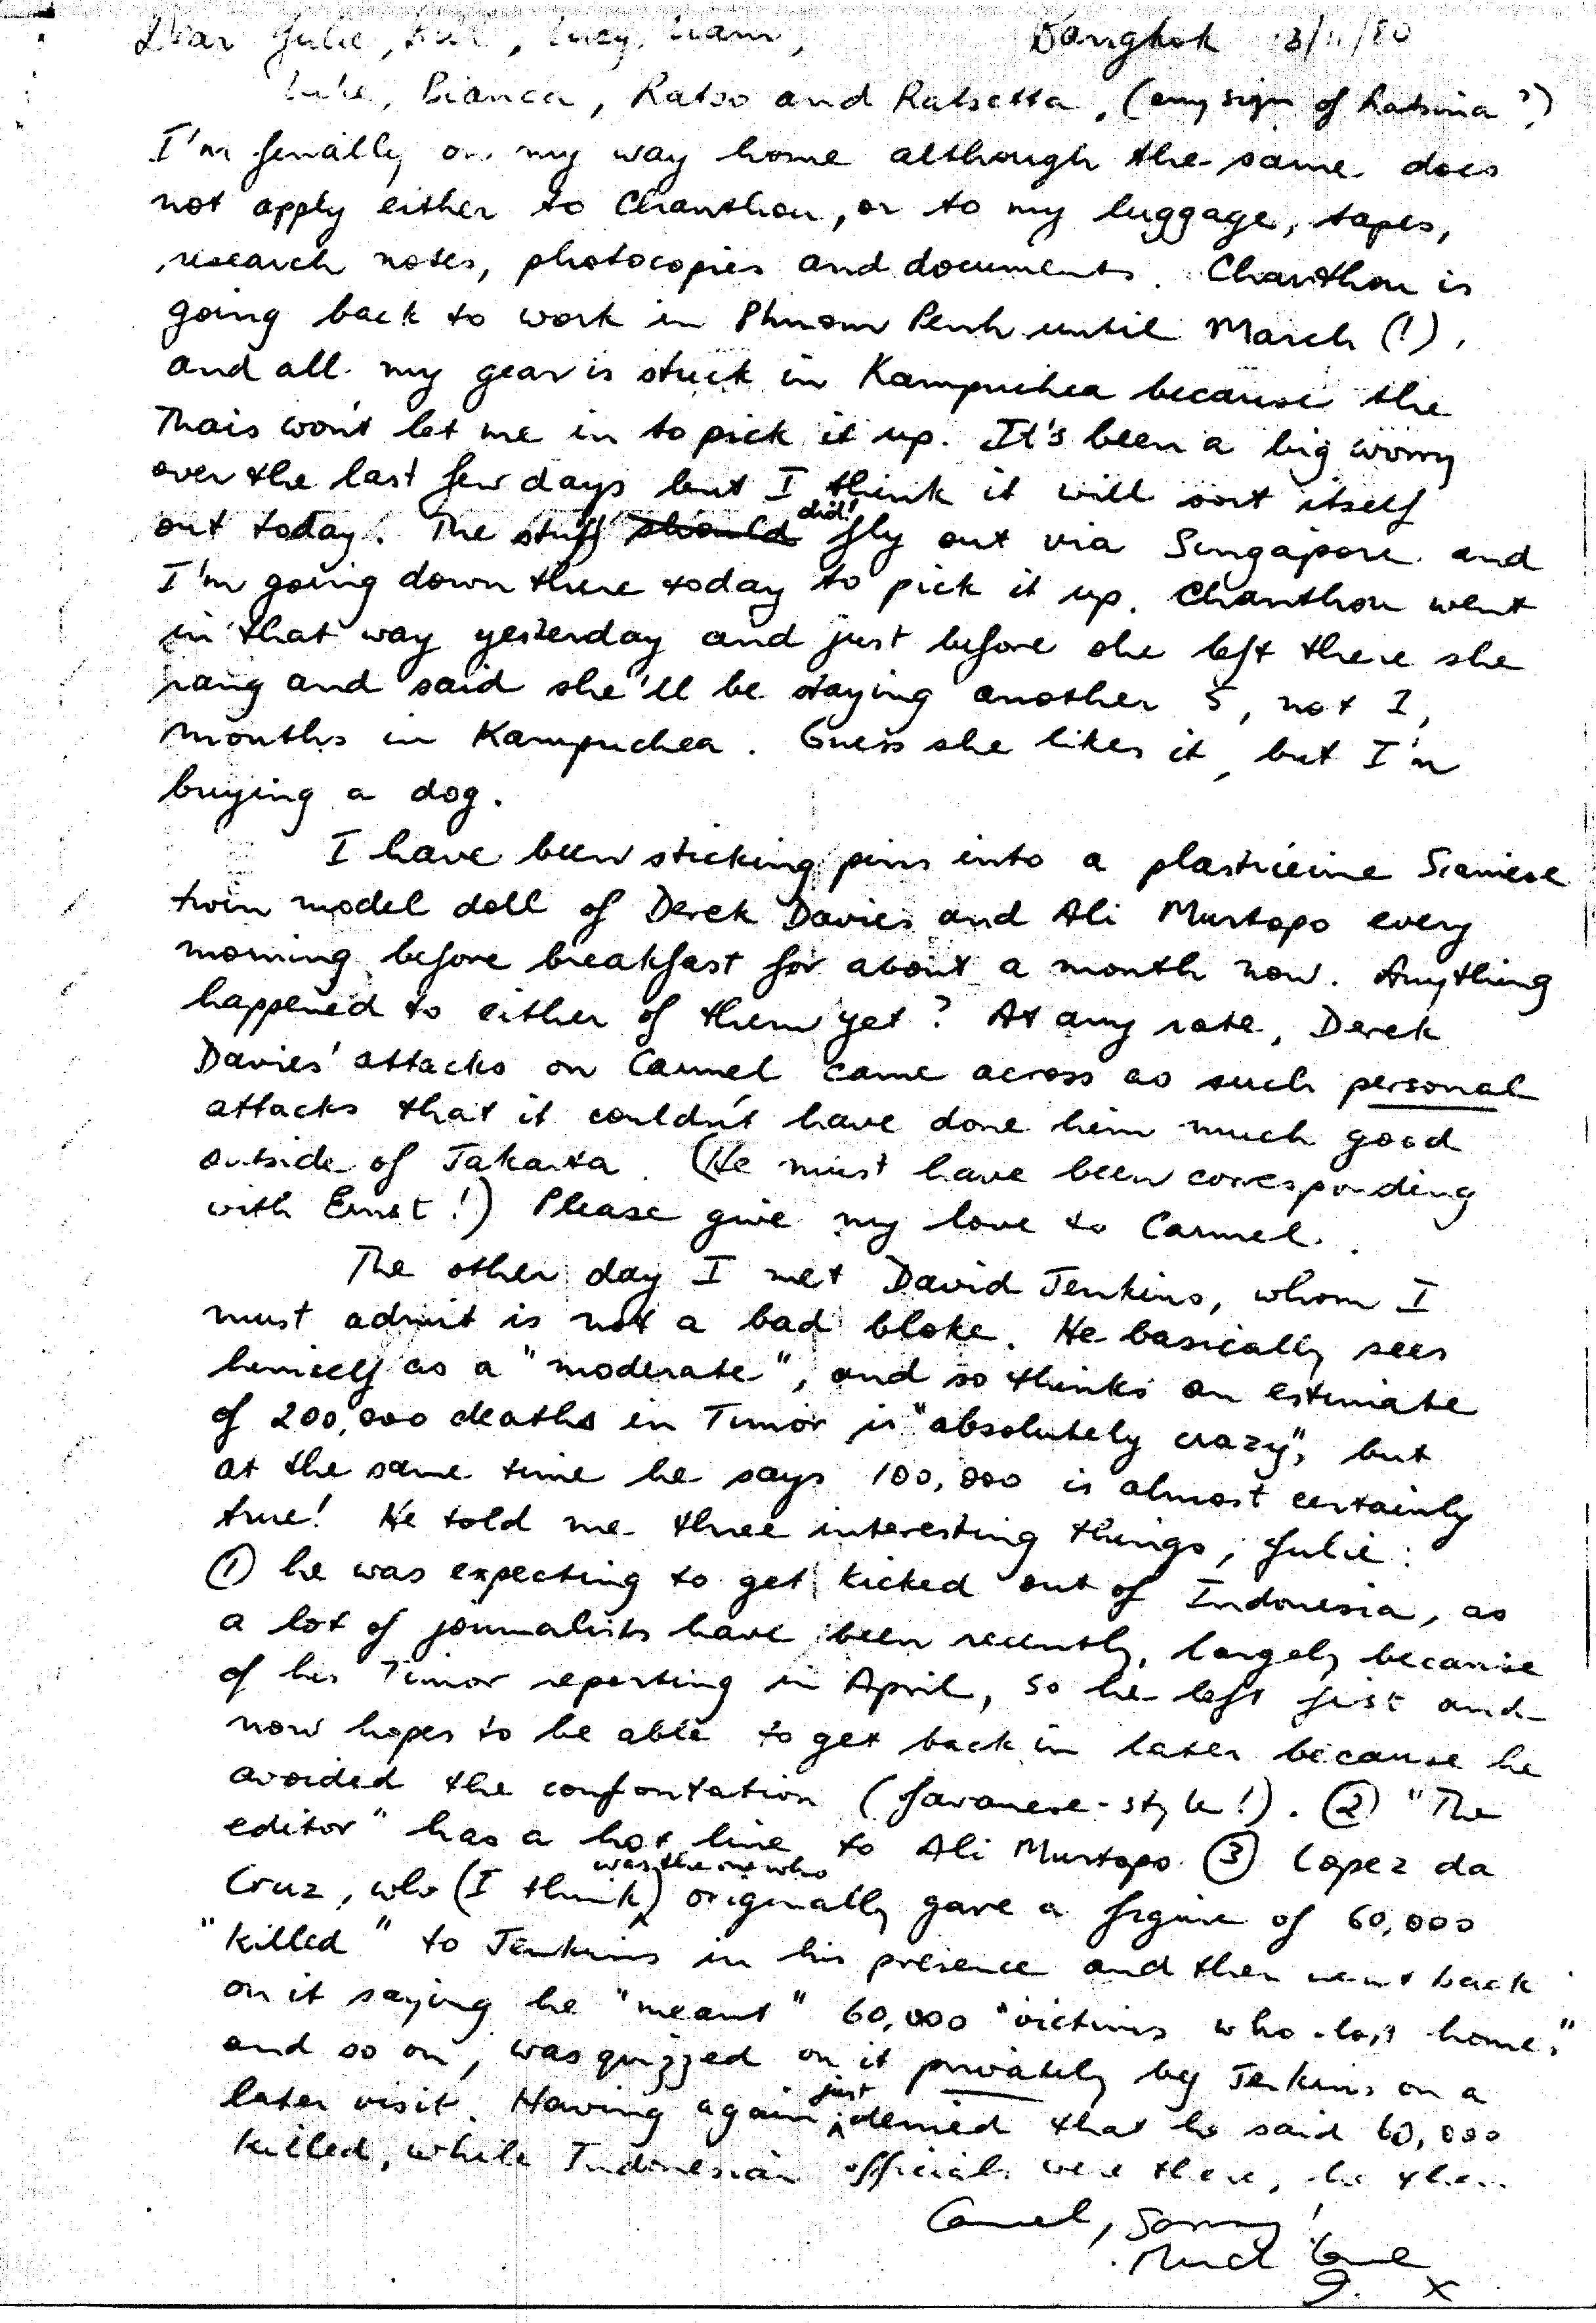 Dear Julie, , Lucy, Liam, Bangkok 13/11/80
Luke, Bianca, Ratso and Ratsetta, (any sign of Ratsina?)
I'm finally on my way home although the same does
not apply either to Chanthou, or to my luggage, tapes,
research notes, photocopies and documents. Chanthou is
going back to work in Phnom Penh until March (!),
and all my gear is stuck in Kampuchea because the
Thais won't let me in to pick it up. It's been a big worry
over the last few days but I think it will sort itself
out today. The stuff should did! fly out via Singapore and
I'm going down there today to pick it up. Chanthou went
in that way yesterday and just before she left there she
rang and said she'll be staying another 5, not 1,
months in Kampuchea. Guess she likes it, but I'm
buying a dog.
I have been sticking pins into a plasticine Siamese
twin model doll of Derek Davies and Ali Murtopo every
morning before breakfast for about a month now. Anything
happened to either of them yet? At any rate, Derek
Davies' attacks on Carmel came across as such personal
attacks that it couldn't have done him much good
outside of Jakarta. (He must have been corresponding
with Ernst!) Please give my love to Carmel.
The other day I met David Jenkins, whom I
must admit is not a bad bloke. He basically sees
himself as a "moderate", and so thinks an estimate
of 200,000 deaths in Timor is "absolutely crazy", but
at the same time he says 100,000 is almost certainly
true! He told me three interesting things, Julie:
① he was expecting to get kicked out of Indonesia, as
a lot of journalists have been recently, largely because
of his Timor reporting in April, so he left first and
now hopes to be able to get back in later because he
avoided the confontation (Javanese-style!). ② "The
editor" has a hot line to Ali Murtopo ③ Lopez da
Cruz, who (I think) was the one who originally gave a figure of 60,000
"killed" to Jenkins in his presence and then went back
on it saying he "meant" 60,000 "victims who lost home,"
and so on, was quizzed on it privately by Jenkins on a
later visit. Having again just denied that he said 60,000
killed, while Indonesian officials were there, he then
Carmel, Sorry!
Much love
G. x